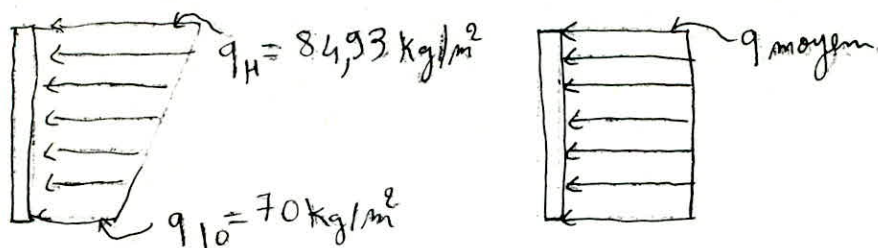 q_H = 84,93 kg/m²
q moyen
q_10 = 70 kg/m²